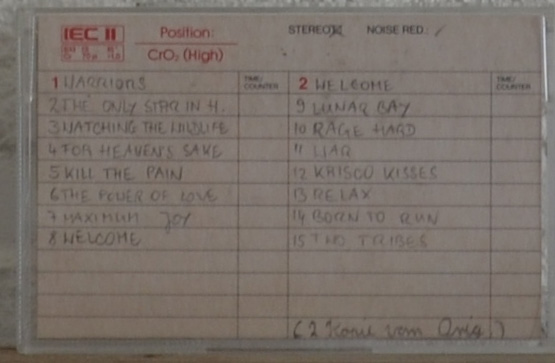 IEC II
Position:
CrO₂ (High)
STEREO☒ NOISE RED.: /
1 WARRIORS
TIME/
COUNTER
2 THE ONLY STAR IN H.
3 WATCHING THE WILDLIFE
4 FOR HEAVEN'S SAKE
5 KILL THE PAIN
6 THE POWER OF LOVE
7 MAXIMUM JOY
8 WELCOME
2 WELCOME
TIME/
COUNTER
9 LUNAR BAY
10 RAGE HARD
11 LIAR
12 KRISCO KISSES
13 RELAX
14 BORN TO RUN
15 TWO TRIBES
(2 Kopie vom Orig.)